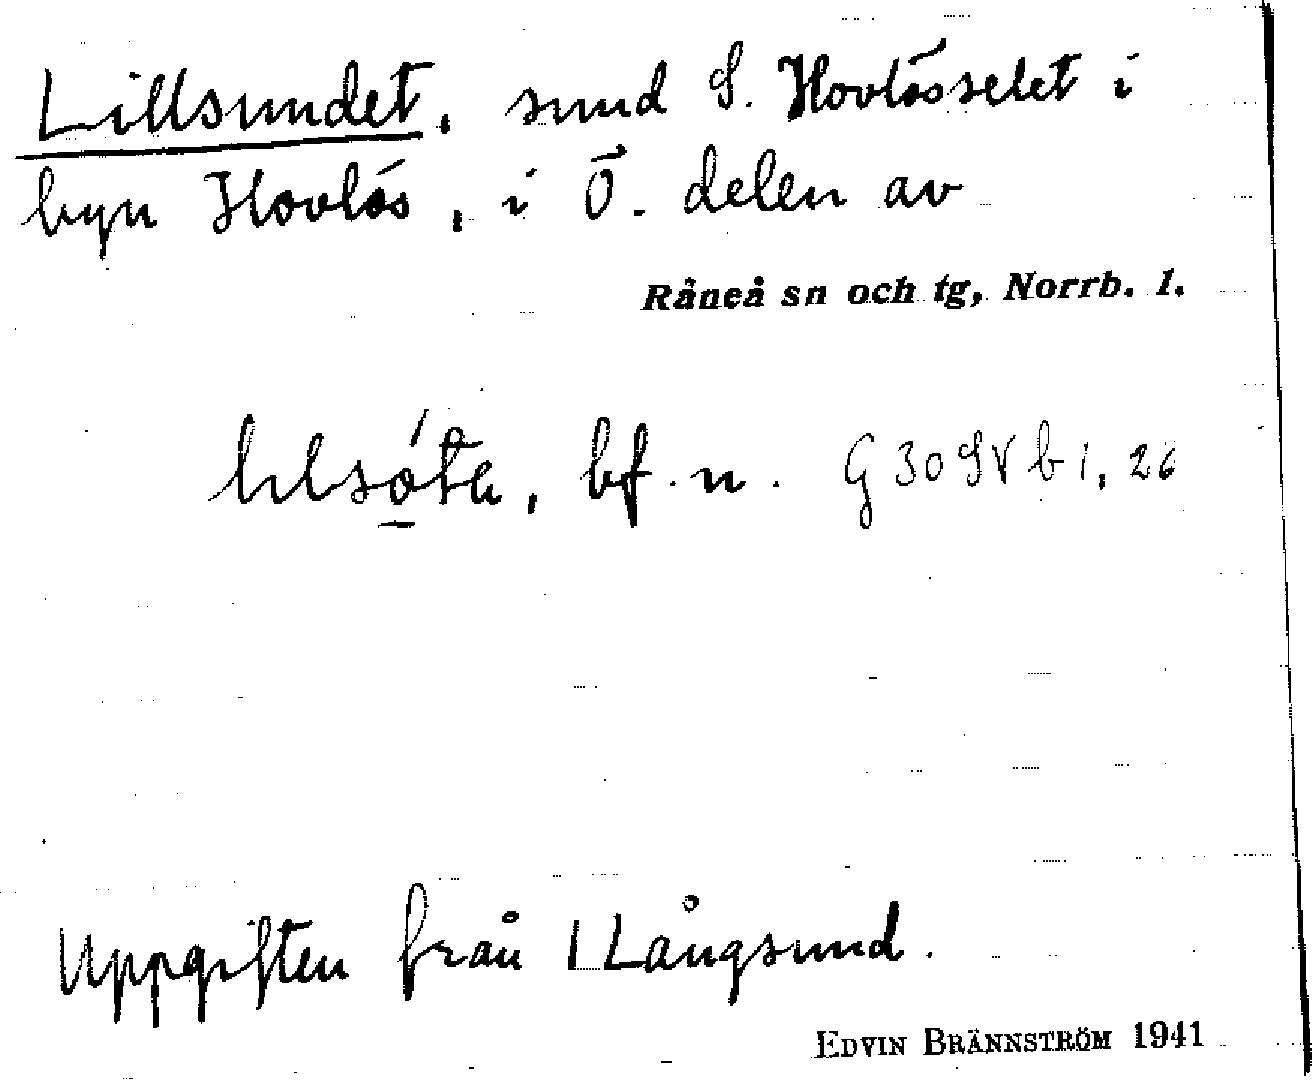 Lillsundet, sund S. Hovlösselet i
byn Hovlös, i Ö. delen av
Råneå sn och tg, Norrb. l.
bf. n. G 30 SV b 1, 26
Uppgiften från Långsund.
EDVIN BRÄNNSTRÖM 1941